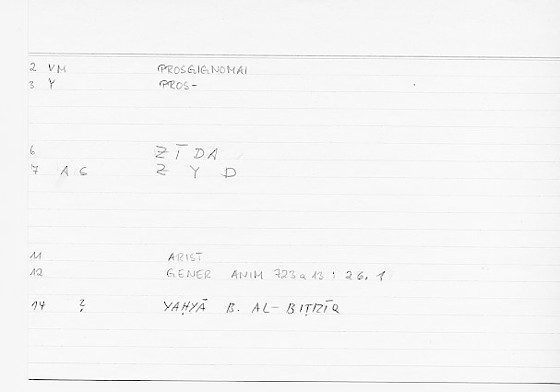 2 VM PROSGIGNOMAI
3 Y PROS-
6 ZĪDA
7 A G Z Y D
11 ARIST
12 GENER ANIM 723a13 : 26.1
14 ? YAḤYĀ B. AL-BIṬRĪQ